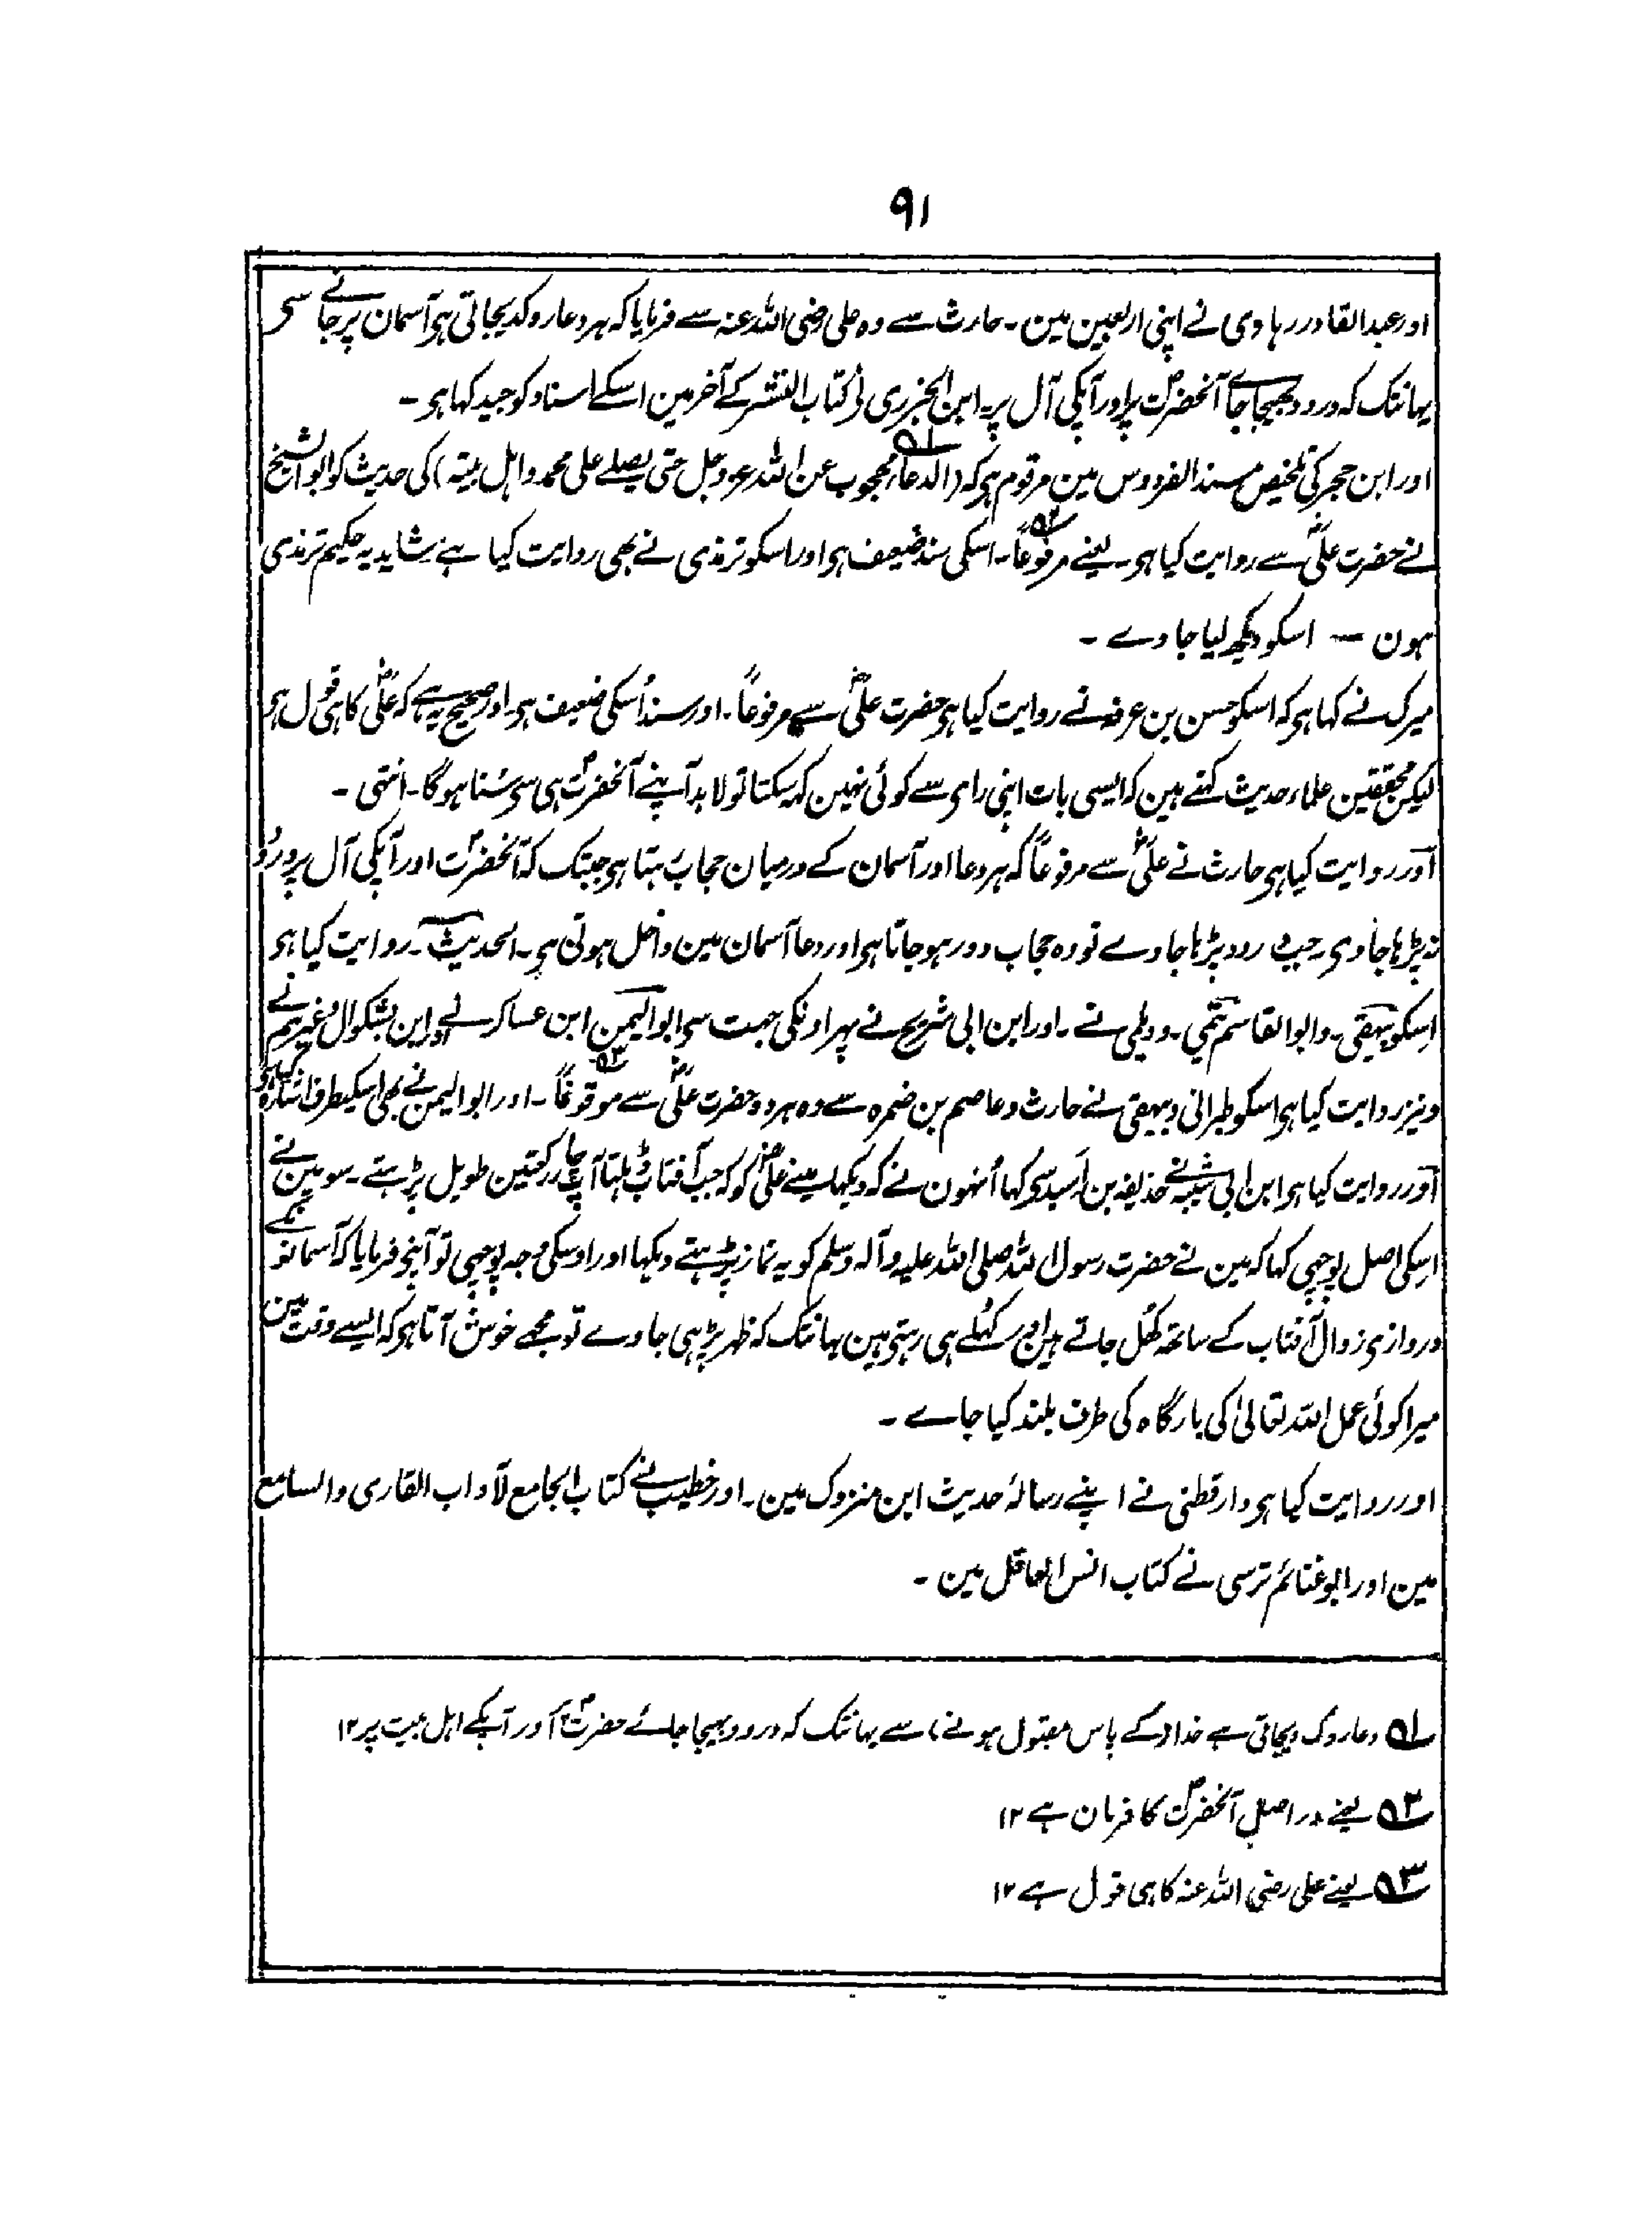 ۹۱
اور عبدالقادر رہاوی نے اپنی اربعین مین۔ حارث سے وہ علی رضی اللہ عنہ سے فرمایا کہ ہر دعا روکدیجاتی ہی آسمان پر جانے سی
یہانتک کہ درود بھیجا جاے آنحضرتؐ پر اور آپکی آل پر۔ ابن الجزری نی کتاب النشر کے آخر مین اسکے اسناد کو جید کہا ہو۔
اور ابن حجر کی تلخیص مسند الفردوس مین مرقوم ہی کہ (الدعاء محجوب عن اللہ عزوجل حتی یصلے علی محمد واہل بیتہ)۵۱ کی حدیث کو ابو الشیخ
نے حضرت علیؓ سے روایت کیا ہو۔ یعنے مرفوعاً۵۲۔ اسکی سند ضعیف ہو اور اسکو ترمذی نے بھی روایت کیا ہے شاید یہ حکیم ترمذی
ہون — اسکو دیکھ لیا جاوے۔
میرک نے کہا ہی کہ اسکو حسن بن عرفہ نے روایت کیا ہو حضرت علیؓ سے مرفوعاً۔ اور سند اُسکی ضعیف ہو اور صحیح یہ ہے کہ علیؓ کا ہی قول ہو
لیکن محققین علماء حدیث کہتے ہین کہ ایسی بات اپنی رای سے کوئی نہین کہہ سکتا تو لابد آپنے آنحضرتؐ ہی سی سُنا ہوگا۔ انتہی۔
آور روایت کیا ہی حارث نے علیؓ سے مرفوعاً کہ ہر دعا اور آسمان کے درمیان حجاب رہتا ہو جبتک کہ آنحضرتؐ اور آپکی آل پر درود
نہ پڑہا جاوی۔ جب درود پڑہا جاوے تو وہ حجاب دور ہوجاتا ہو اور دعا آسمان مین داخل ہوتی ہی۔ الحدیث۔ روایت کیا ہو
اسکو بیہقی۔ و ابو القاسم تیمی۔ و دیلمی نے۔ اور ابن ابی شریح نے پہر اونکی جہت سی ابو الیمن ابن عساکر نے اور ابن بشکوال وغیرہم نے
و نیز روایت کیا ہو اسکو طبرانی و بیہقی نے حارث و عاصم بن ضمرہ سے وہ ہر دو حضرت علیؓ سے موقوفاً۵۳۔ اور ابو الیمن نے بھی اسکیطرف اشارہ کیا ہو
آور روایت کیا ہو ابن ابی شیبہ نے حذیفہ بن اَسید سی کہا اُنہون نے کہ دیکھا مینے علیؓ کو کہ جب آفتاب ڈہلتا آپ چار رکعتین طویل پڑہتے۔ سو مین نے
اسکی اصل پوچھی کہا کہ مین نے حضرت رسول اللہ صلی اللہ علیہ وآلہ وسلم کو یہ نماز پڑہتے دیکہا اور اوسکی وجہ پوچھی تو آپنے فرمایا کہ آسمانونکے
دروازی زوال آفتاب کے ساتھ کُھل جاتے ہین اور کھلے ہی رہتی ہین یہانتک کہ ظہر پڑہی جاوے تو مجھے خوش آتا ہو کہ ایسے وقت مین
میرا کوئی عمل اللہ تعالیٰ کی بارگاہ کی طرف بلند کیا جاے۔
اور روایت کیا ہو دارقطنی نے اپنے رسالۂ حدیث ابن متروک مین۔ اور خطیب نے کتاب الجامع لآداب القاری والسامع
مین اور ابو غنائم ترسی نے کتاب انس العاقل مین۔
۵۱ دعا روک دیجاتی ہے خدا (کے پاس مقبول ہونے) سے یہانتک کہ درود بھیجا جائے حضرتؐ اور آپکے اہل بیت پر ۱۲
۵۲ یعنے در اصل آنحضرتؐ کا فرمان ہے ۱۲
۵۳ یعنے علی رضی اللہ عنہ کا ہی قول ہے ۱۲